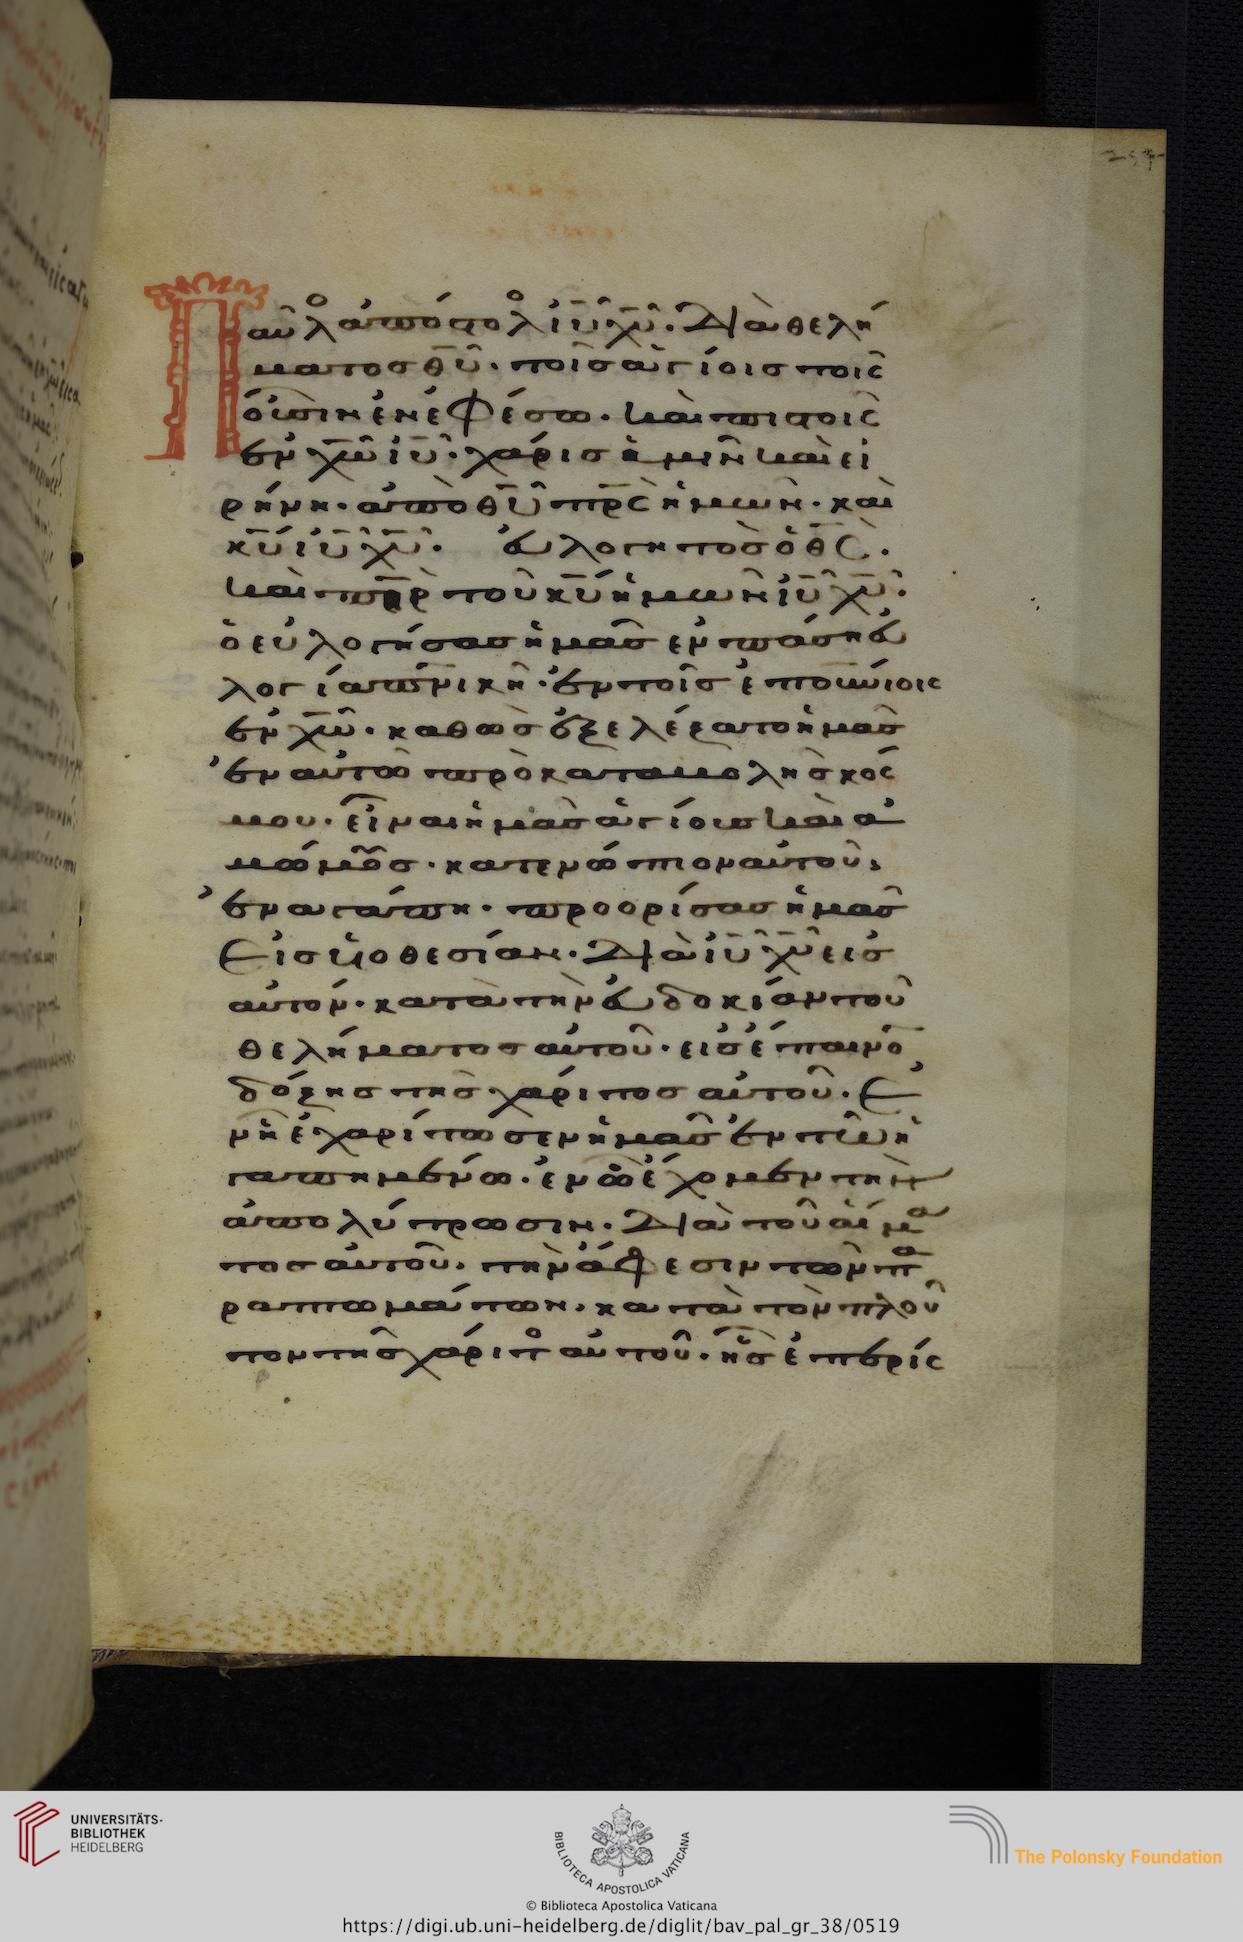 257
Παῦλος ἀπόστολος ἰῦ χῦ· διὰ θελή
ματος θῦ· τοῖς ἁγίοις τοῖς
οὖσιν ἐν ἐφέσω· καὶ πιστοῖς
ἐν χῶ ἰῦ· χάρις ἡμῖν καὶ εἰ
ρήνη· ἀπὸ θῦ πρς ἡμῶν· καὶ
κῦ ἰῦ χῦ· εὐλογητὸς ὁ θς·
καὶ πηρ τοῦ κῦ ἡμῶν ἰῦ χῦ·
ὁ εὐλογήσας ἡμᾶς ἐν πάση εὐ
λογία πνικῆ· ἐν τοῖς ἐπουνίοις
ἐν χῶ· καθὼς ἐξελέξατο ἡμᾶς
ἐν αὐτῶ πρὸ καταβολῆς κόσ
μου· εἶναι ἡμᾶς ἁγίους καὶ ἀ
μώμους· κατενώπιον αὐτοῦ·
ἐν ἀγάπη· προορίσας ἡμᾶς
Εἰς υἱοθεσίαν· διὰ ἰῦ χῦ εἰς
αὐτόν· κατὰ τὴν εὐδοκίαν τοῦ
θελήματος αὐτοῦ· εἰς ἔπαινον
δόξης τῆς χάριτος αὐτοῦ· Ἐ
ν ἧ ἐχαρίτωσεν ἡμᾶς ἐν τῶ ἠ
γαπημένω· ἐν ᾧ ἔχομεν τὴν
ἀπολύτρωσιν· διὰ τοῦ αἵμα
τος αὐτοῦ· τὴν ἄφεσιν τῶν πα
ραπτωμάτων· κατὰ τὸν πλοῦ
τον τῆς χάριτος αὐτοῦ· ἧς ἐπερίς
UNIVERSITÄTS-
BIBLIOTHEK
HEIDELBERG
BIBLIOTECA APOSTOLICA VATICANA
The Polonsky Foundation
© Biblioteca Apostolica Vaticana
https://digi.ub.uni-heidelberg.de/diglit/bav_pal_gr_38/0519